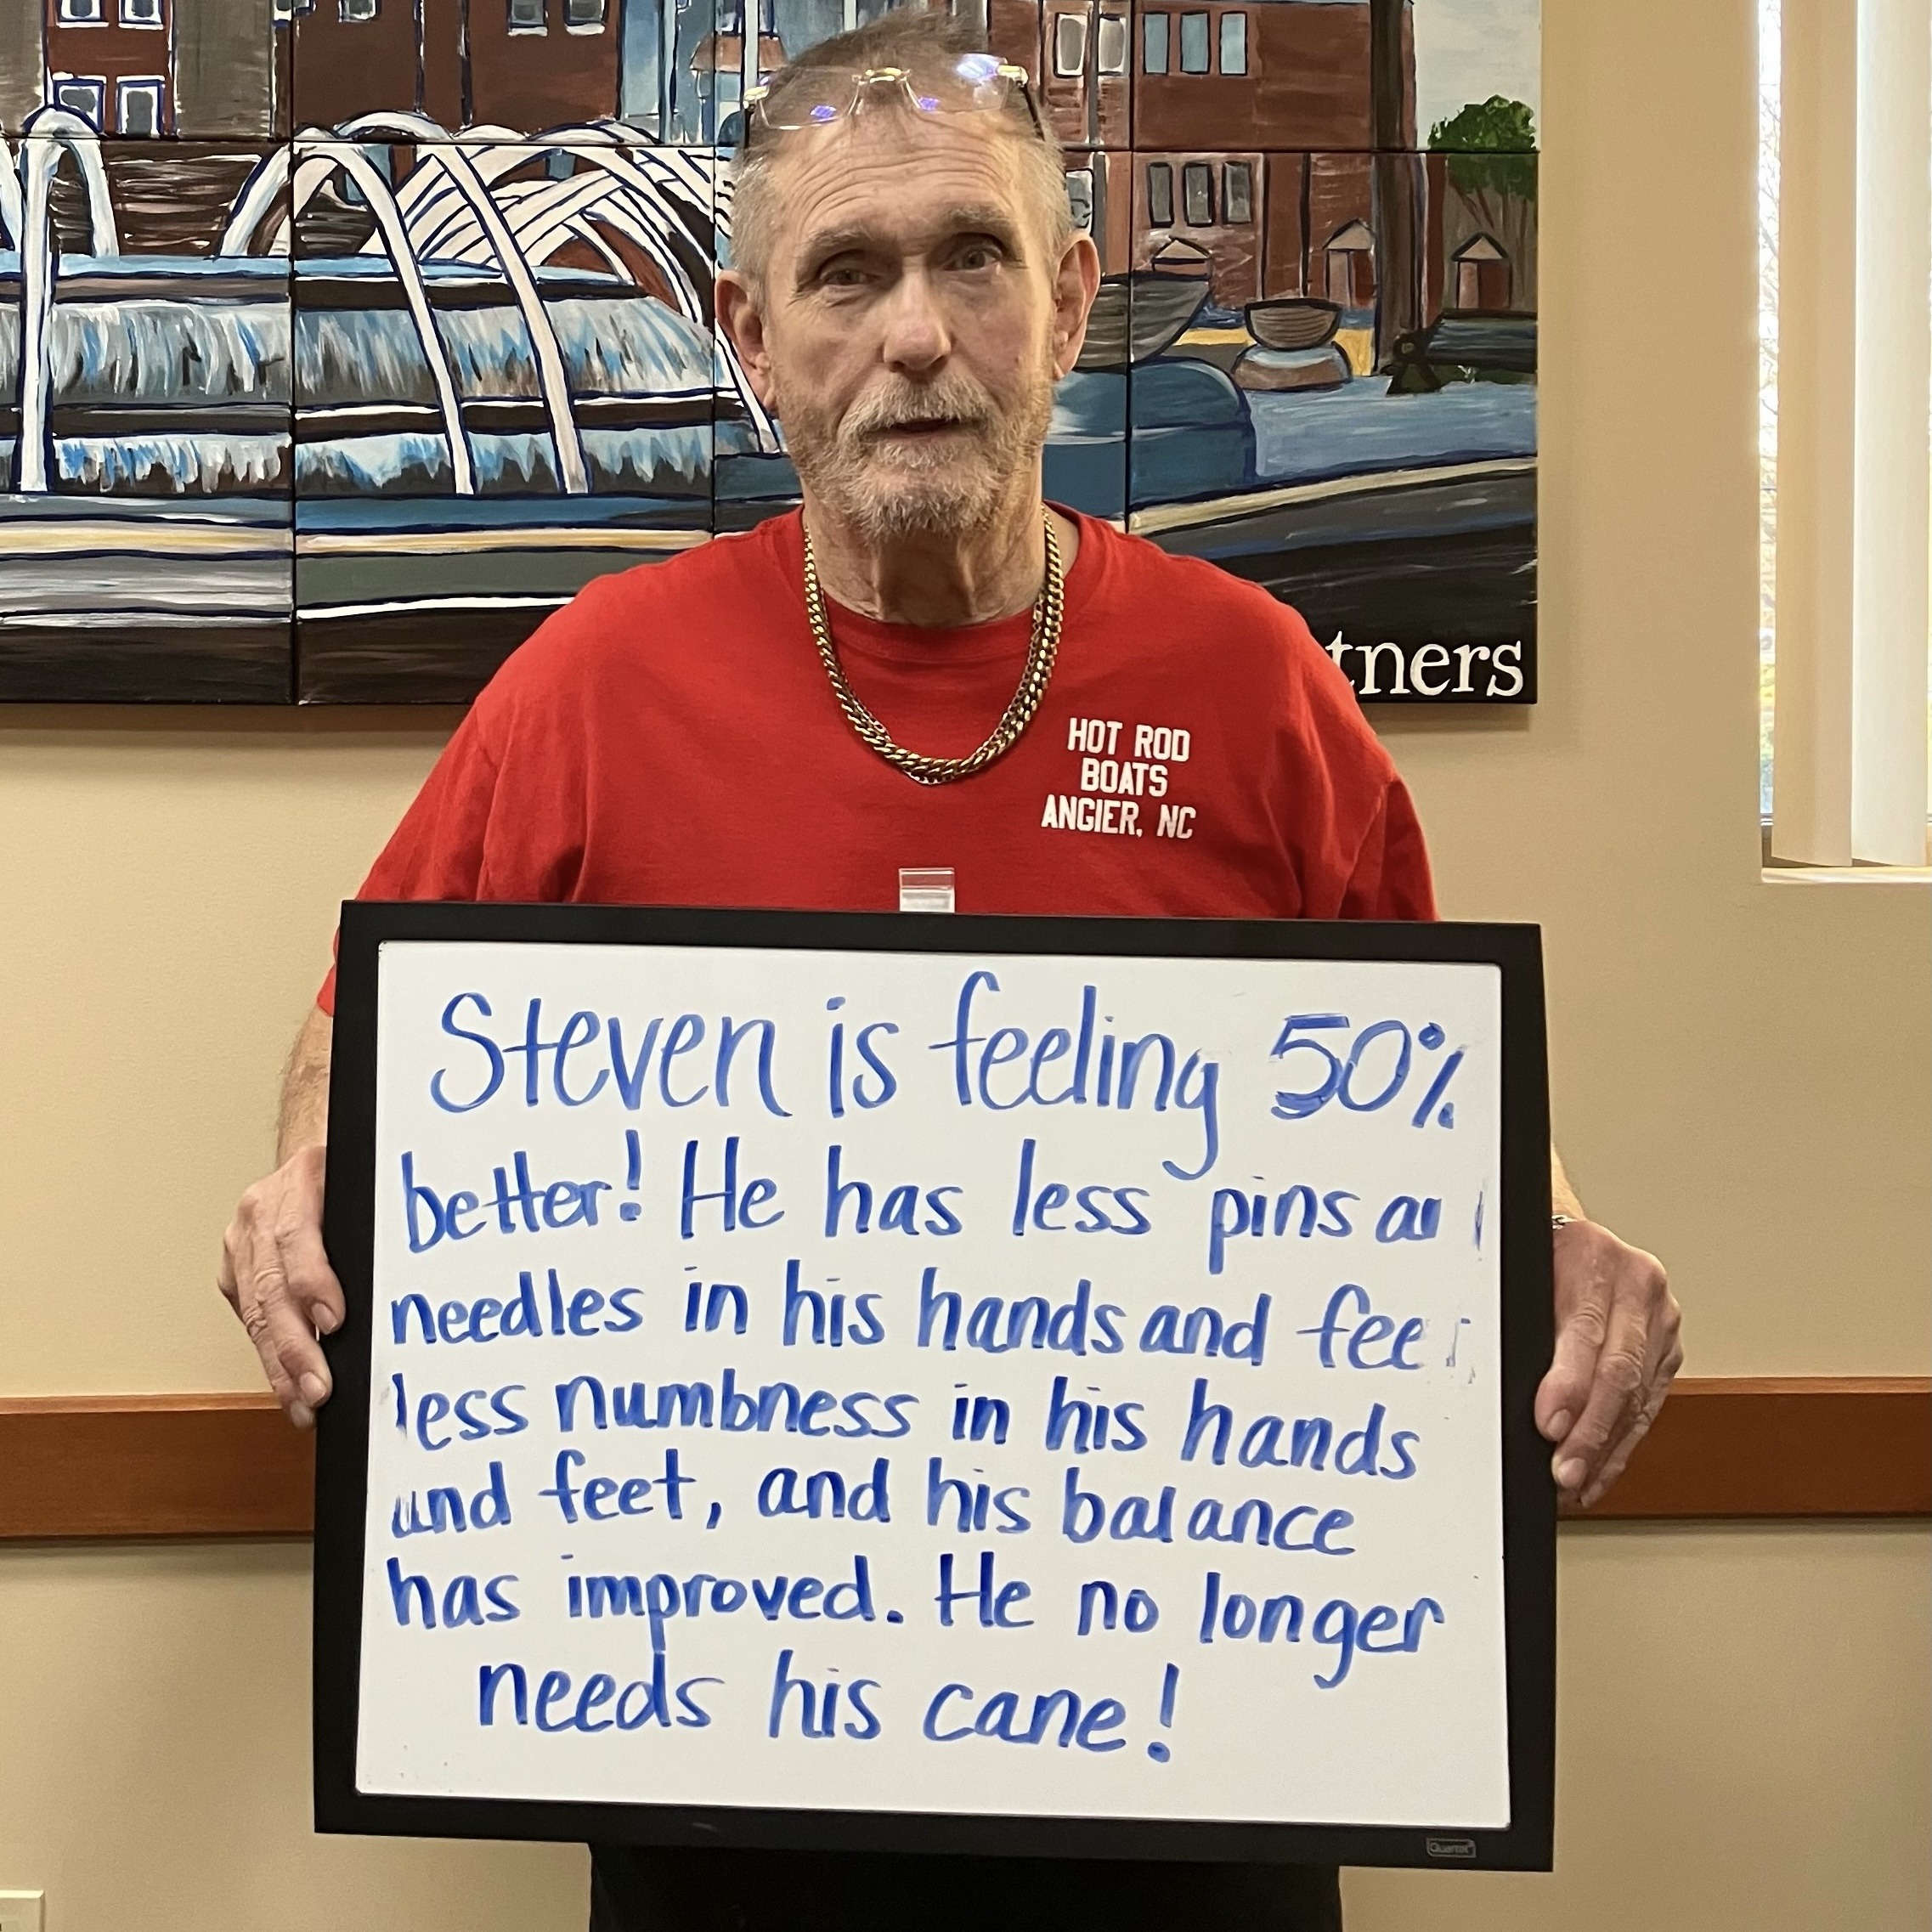 tners
HOT ROD
BOATS
ANGIER, NC
Steven is feeling 50%
better! He has less pins
needles in his hands and fee
less numbness in his hands
and feet, and his balance
has improved. He no longer
needs his cane!
Quartet